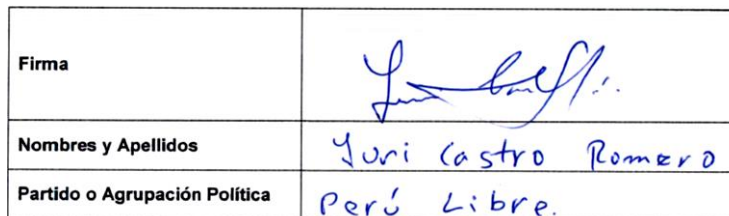 Firma
Nombres y Apellidos Yuri Castro Romero
Partido o Agrupación Política Perú Libre.